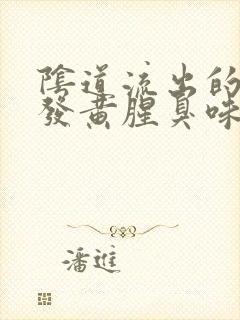 陰道流出的
發黃腥臭味
潘進